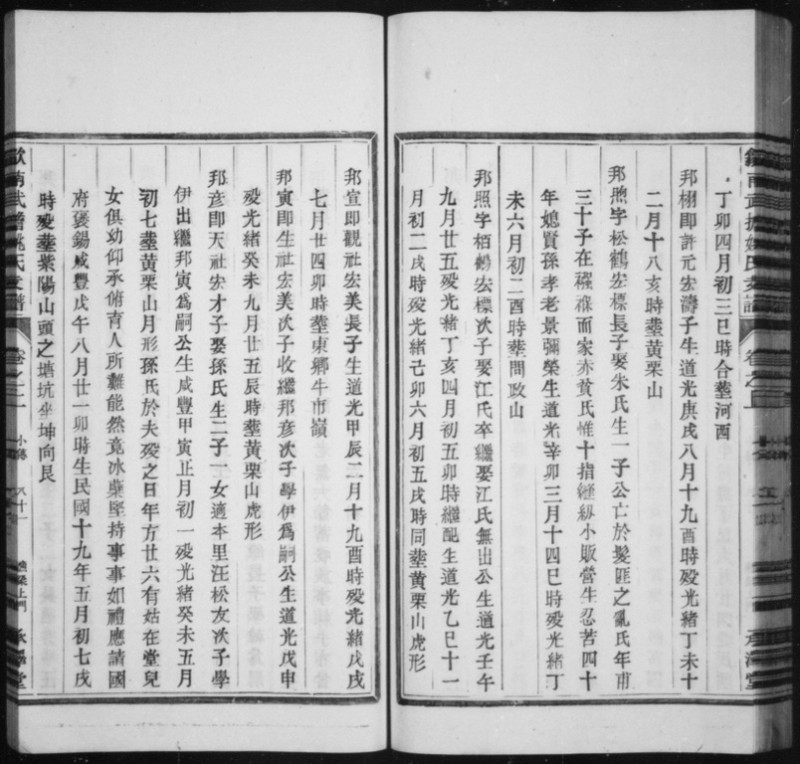 丁卯四月初三巳時合塟河西
邦栩即許元宏濤子生道光庚戌八月十九酉時歿光緒丁未十
二月十八亥時塟黄栗山
邦煦字松鶴宏標長子娶朱氏生一子公亡於髮匪之亂氏年甫
三十子在襁褓而家亦貧氏惟十指縫紉小販營生忍苦四十
年媳賢孫孝老景彌榮生道光辛卯三月十四巳時歿光緒丁
未六月初二酉時塟問政山
邦照字栢鶴宏標次子娶江氏卒繼娶江氏無出公生道光壬午
九月廿五歿光緒丁亥四月初五卯時繼配生道光乙巳十一
月初二戌時歿光緒己卯六月初五戌時同塟黄栗山虎形
邦宣即觀社宏美長子生道光甲辰二月十九酉時歿光緒戊戌
七月廿四卯時塟東鄉牛市嶺
邦寅即生社宏美次子收繼邦彦次子學伊爲嗣公生道光戊申
歿光緒癸未九月廿五辰時塟黄栗山虎形
邦彦即天社宏才子娶孫氏生二子一女適本里汪松友次子學
伊出繼邦寅爲嗣公生咸豐甲寅正月初一歿光緒癸未五月
初七塟黄栗山月形孫氏於夫歿之日年方廿六有姑在堂兒
女俱幼仰承俯育人所難能然竟冰蘗堅持事事如禮應請國
府褒錫咸豐戊午八月廿一卯時生民國十九年五月初七戌
時歿塟紫陽山頭之塘坑坐坤向艮
歙南武擔姚氏支譜
卷之二
小傳
八十一
承澤堂